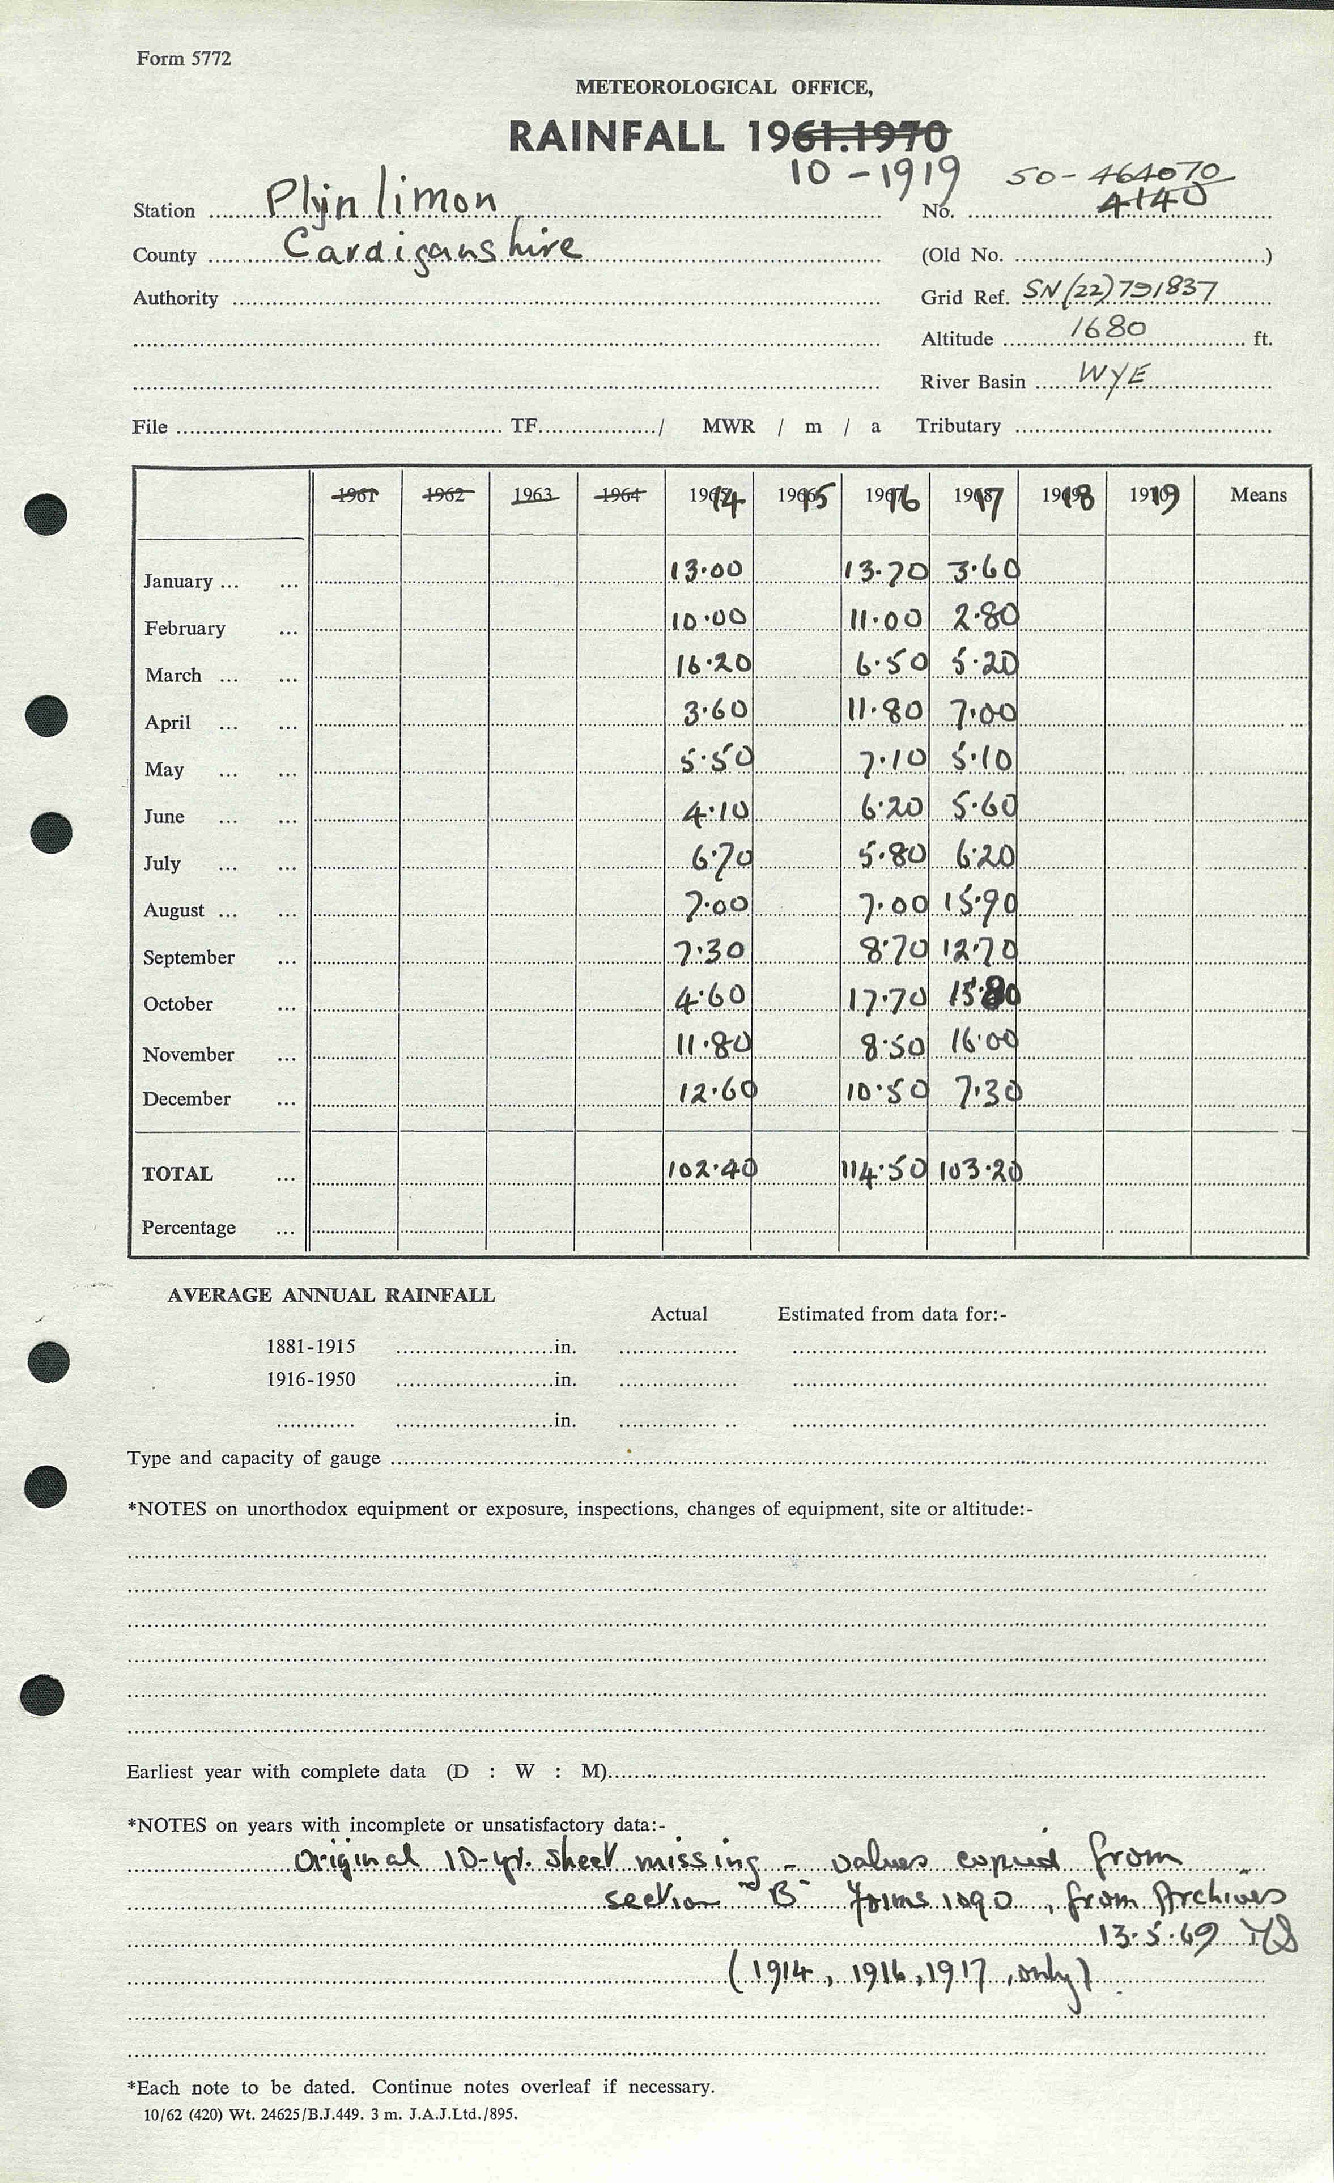 Form 5772
METEOROLOGICAL OFFICE,
RAINFALL 1961.1970
10 - 1919 50 - 464070
Station Plynlimon No. 4140
County Cardiganshire (Old No. )
Authority Grid Ref. SN (22) 791837
Altitude 1680 ft.
River Basin WYE
File TF. / MWR / m / a Tributary
1961 1962 1963 1964 1914 1915 1916 1917 1918 1919 Means
January ... ... 13.00 13.70 3.60
February ... 10.00 11.00 2.80
March ... ... 16.20 6.50 5.20
April ... ... 3.60 11.80 7.00
May ... ... 5.50 7.10 5.10
June ... ... 4.10 6.20 5.60
July ... ... 6.70 5.80 6.20
August ... ... 7.00 7.00 15.90
September ... 7.30 8.70 12.70
October ... 4.60 17.70 15.80
November ... 11.80 8.50 16.00
December ... 12.60 10.50 7.30
TOTAL ... 102.40 114.50 103.20
Percentage ...
AVERAGE ANNUAL RAINFALL
Actual Estimated from data for:-
1881-1915 in.
1916-1950 in.
in.
Type and capacity of gauge
*NOTES on unorthodox equipment or exposure, inspections, changes of equipment, site or altitude:-
Earliest year with complete data (D : W : M)
*NOTES on years with incomplete or unsatisfactory data:-
Original 10-yr. sheet missing - values copied from
section "B" forms 1090, from Archives
13.5.69
(1914, 1916, 1917, only)
*Each note to be dated. Continue notes overleaf if necessary.
10/62 (420) Wt. 24625/B.J.449. 3 m. J.A.J.Ltd./895.